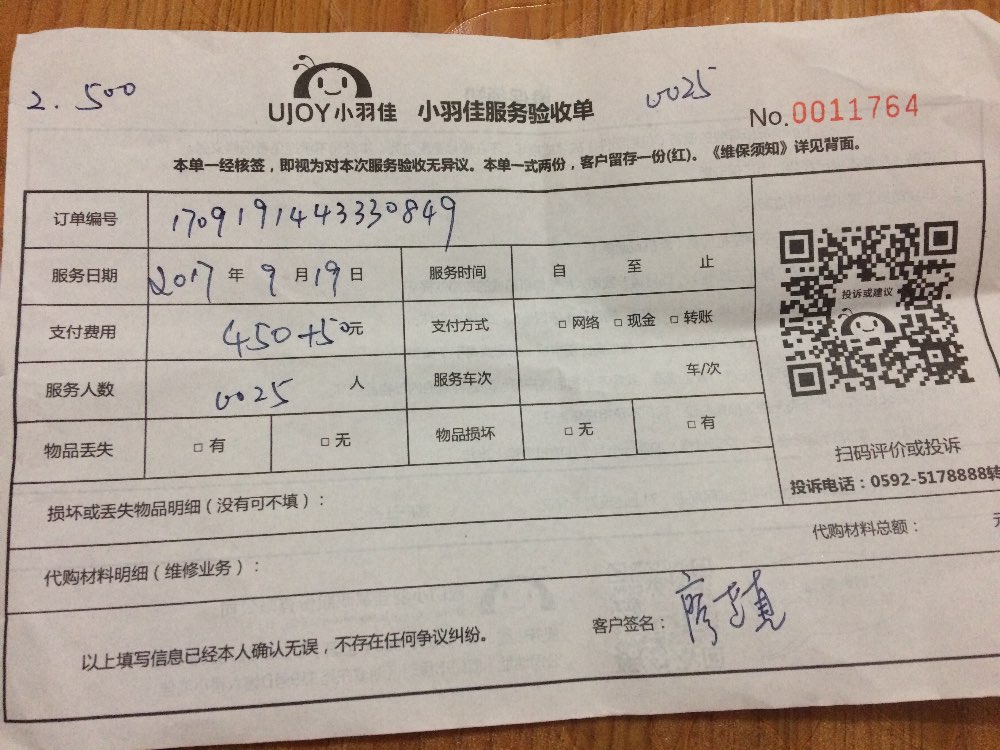 2. 500
UJOY小羽佳 小羽佳服务验收单
0025
No.0011764
本单一经核签，即视为对本次服务验收无异议。本单一式两份，客户留存一份(红)。《维保须知》详见背面。
订单编号 1709191443330849
服务日期 2017 年 9 月 19 日 服务时间 自 至 止
支付费用 450+50元 支付方式 □ 网络 □ 现金 □ 转账
服务人数 0025 人 服务车次 车/次
物品丢失 □ 有 □ 无 物品损坏 □ 无 □ 有
投诉或建议
扫码评价或投诉
投诉电话：0592-5178888转
损坏或丢失物品明细（没有可不填）：
代购材料明细（维修业务）： 代购材料总额：
以上填写信息已经本人确认无误，不存在任何争议纠纷。 客户签名：廖